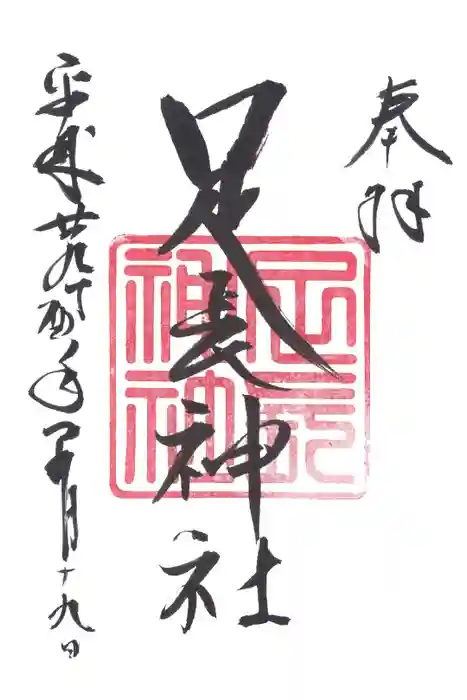 奉拝
足長神社
足長
神社
平成廿九丁酉年 月十九日